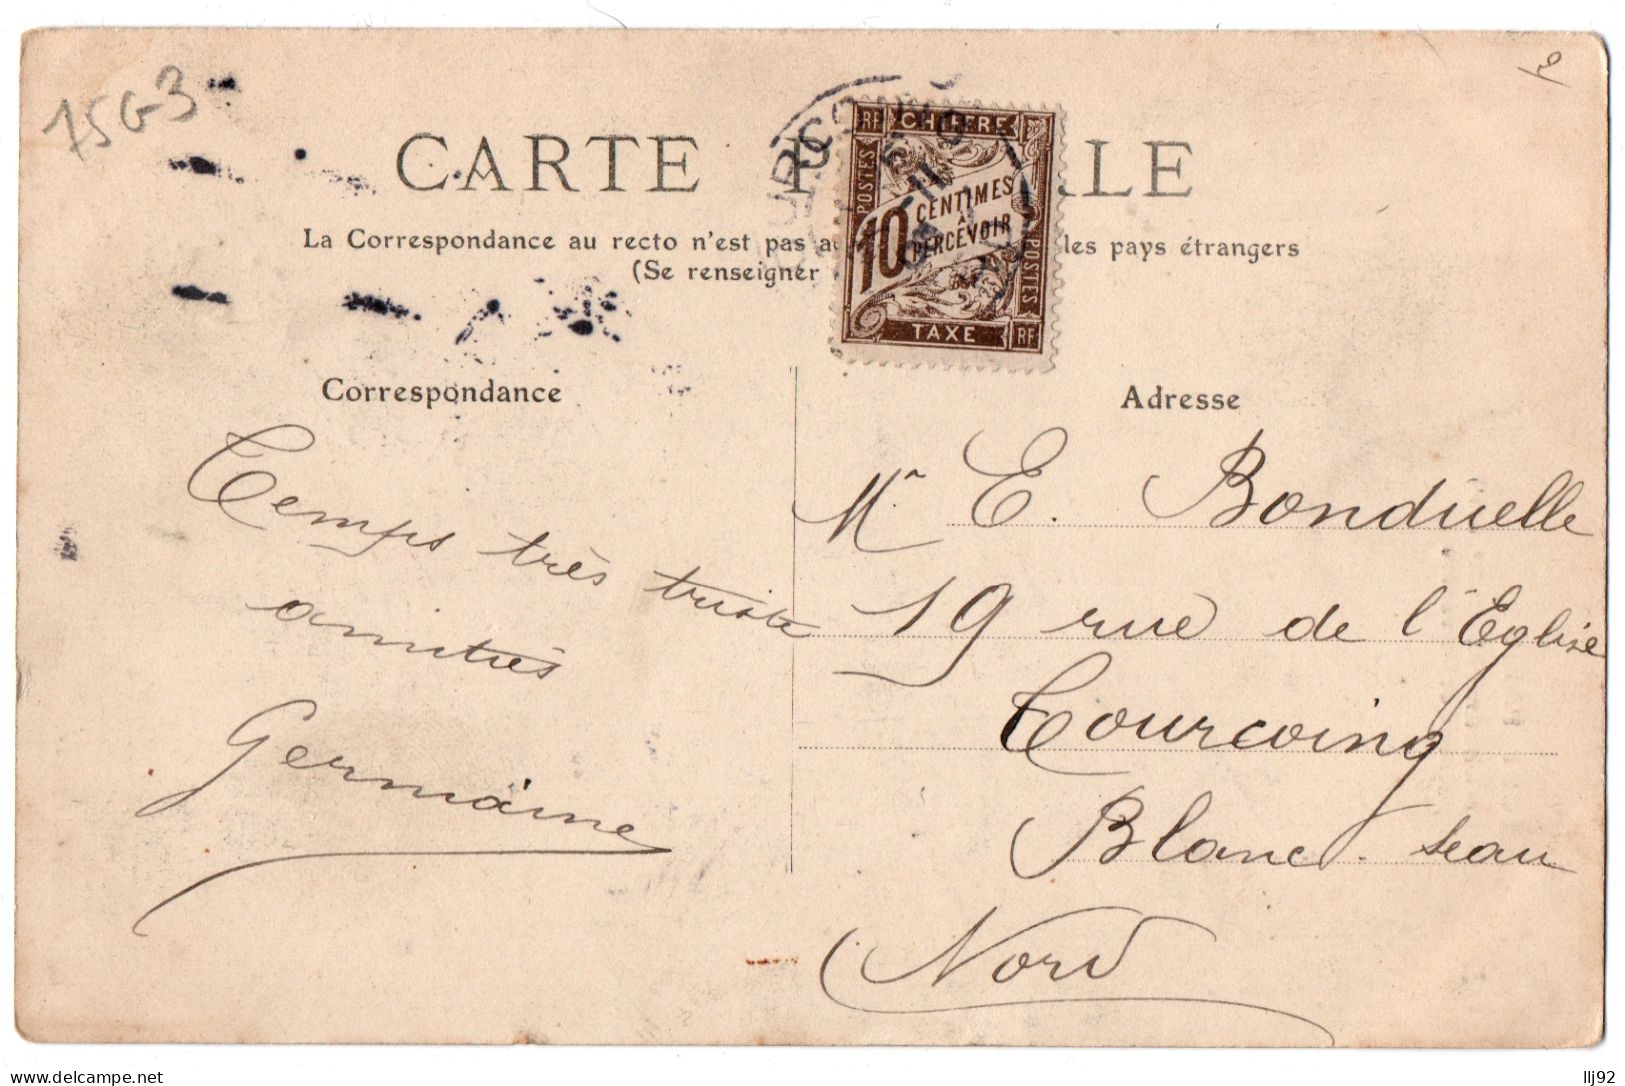 75G3
CARTE P LE
La Correspondance au recto n'est pas a les pays étrangers
(Se renseigner
CHIFFRE
RF
POSTES
10 CENTIMES
À
PERCEVOIR
POSTES
TAXE
RF
Correspondance
Temps très triste
amitiés
Germaine
Adresse
Mr E. Bonduelle
19 rue de l'Eglise
Tourcoing
Blanc-seau
Nord
delcampe.net
llj92